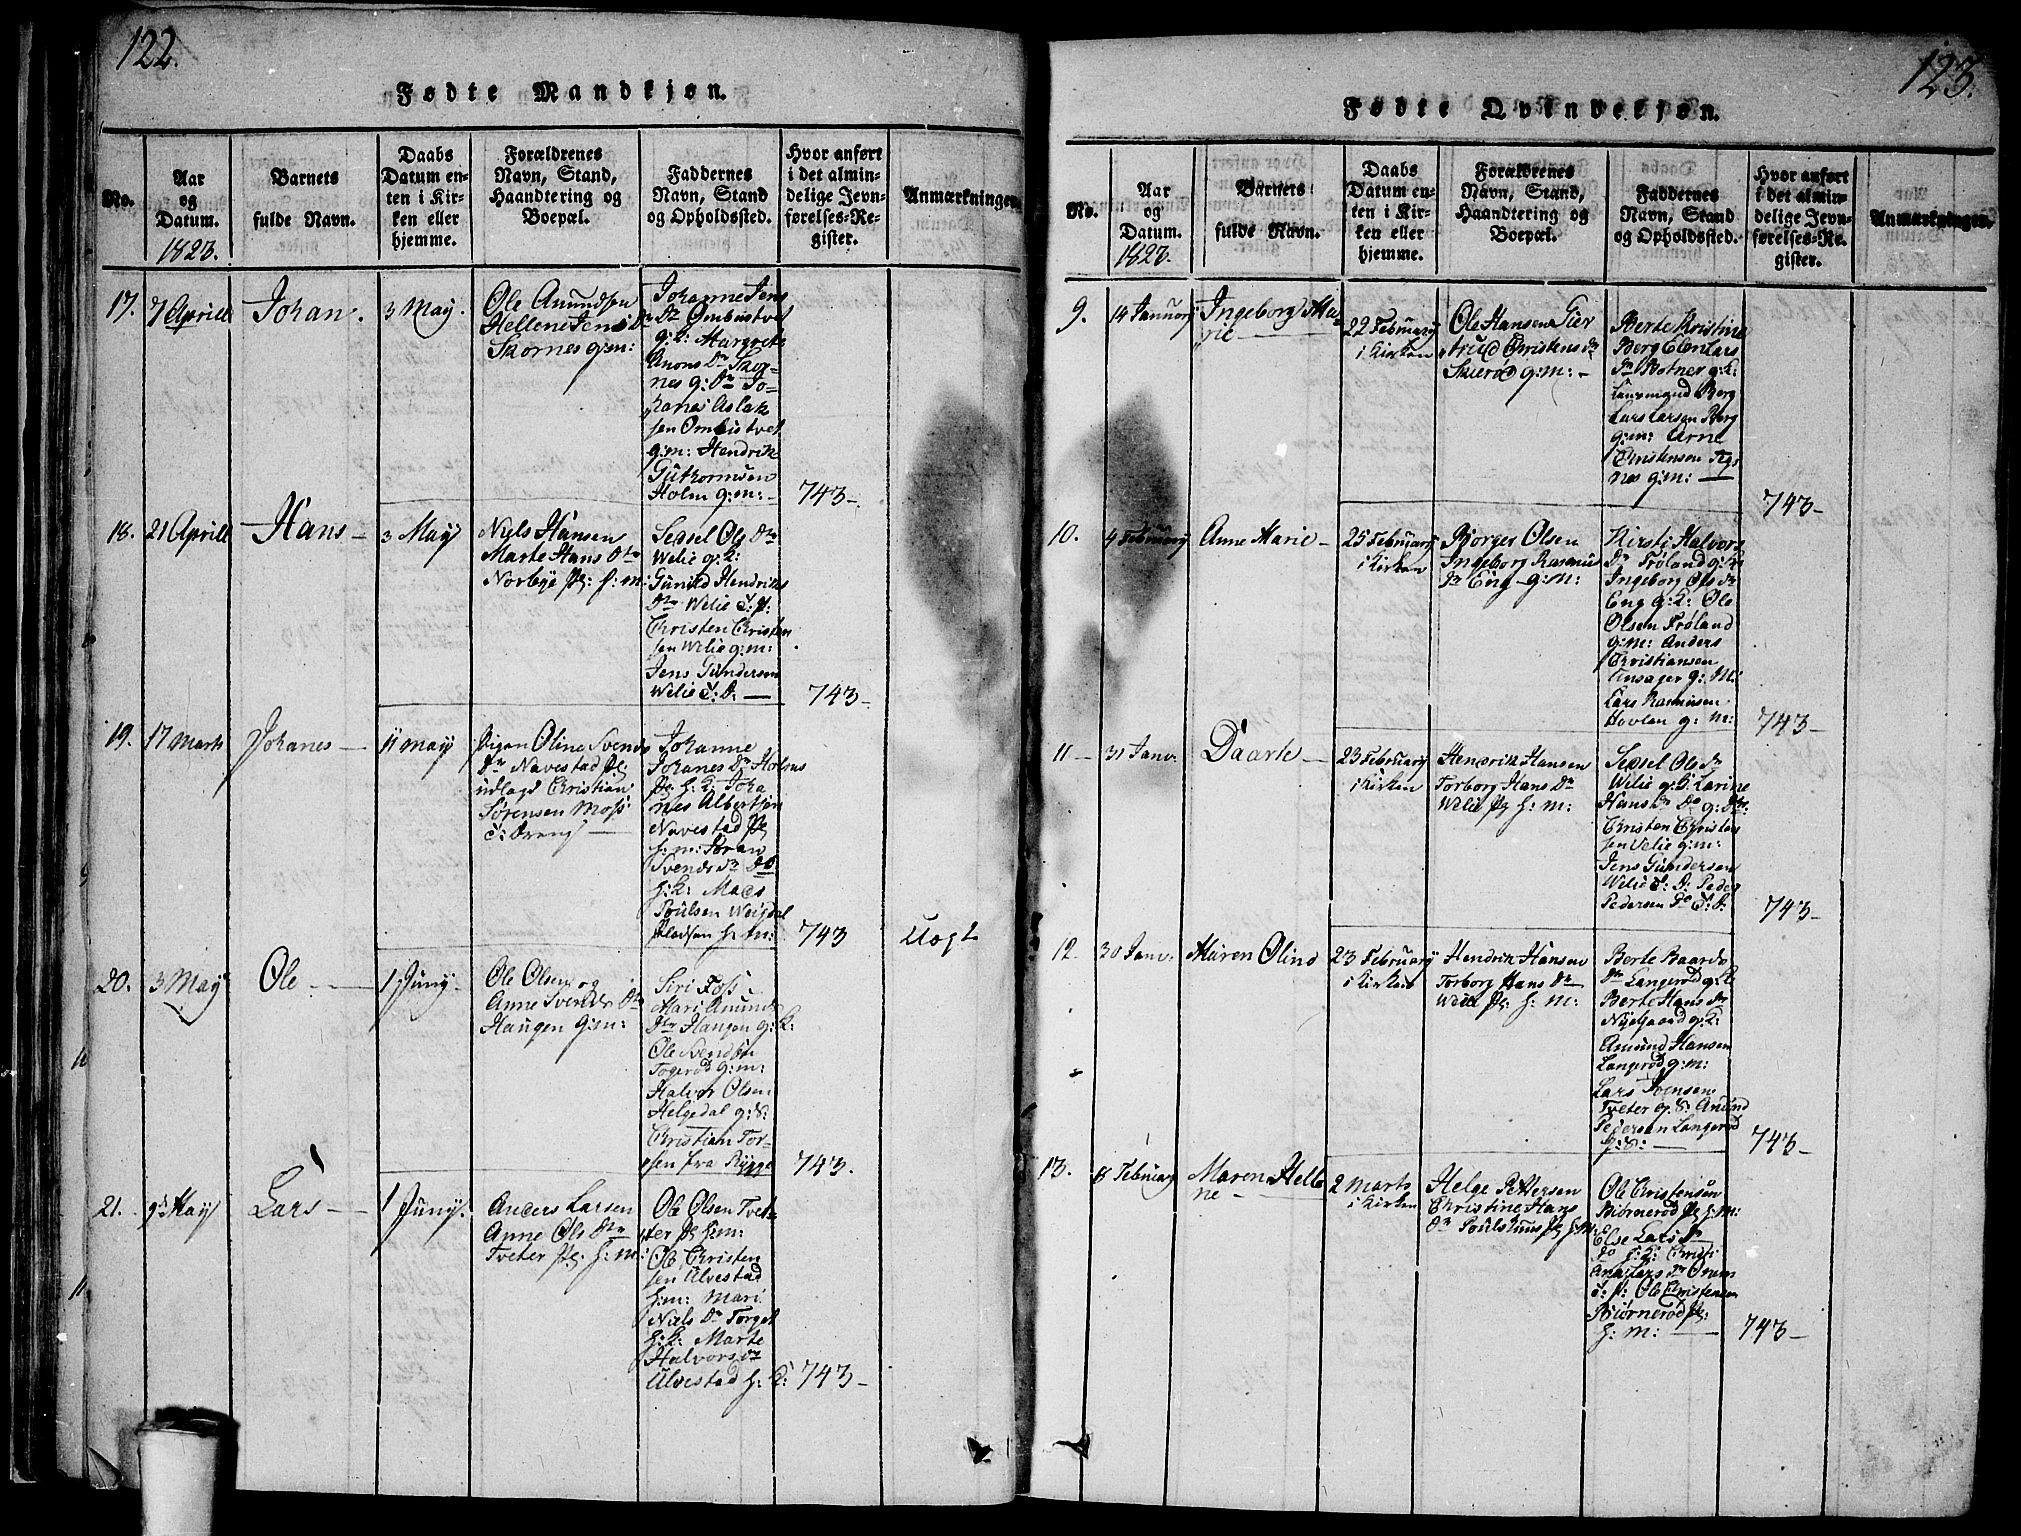 122.
Fødte Mandkjøn.
No.
Aar
og
Datum.
1823.
Barnets
fulde Navn.
Daabs
Datum en-
ten i Kir-
ken eller
hjemme.
Forældrenes
Navn, Stand,
Haandtering og
Boepæl.
Faddernes
Navn, Stand
og Opholdssted.
Hvor anført
i det almin-
delige Jevn-
førelses-Re-
gister.
Anmærkninger.
17.
7 Aprill
Johan.
3 May.
Ole Amundsen
Hellene Jens Dr
Skornes g:m:
Johanne Jens
Dr Ombustvet
g:k: Margrete
Anons Dr Skor-
nes g: Dr Jo-
hanes Aslak
sen Ombustvet
g:m: Hendrik
Guthormsen
Holm g:m:-
743-
18.
21 Aprill
Hans-
3 May
Niels Hansen
Marte Hans Dtr
Norbye pl: h:m:
Sedsel Ols Dtr
Welie g:k:
Gunild Hendriks
Dtr Welie T:P:
Christen Christen
sen Welie g:m:
Jens Gundersen
Welie T:D.-
743-
19.
17 Marts
Johanes-
11 May
Pigen Oline Svends
Dr Navestad pl
udlagd Christian
Sørensen Moss
T: Dreng-
Johanne
Johanes Dr Holms
pl h:k: Joha
nes Albertsen
Navestad pl
h:m: Joran
Svends Dr Do
h:k: Mads
Poulsen Weigdal
pladsen h:m:
743
Uægt
20.
3 May
Ole-
1 Juny.
Ole Olsen og
Anne Svends Dtr
Haugen g:m:
Siri Foss
Mari Amunds
Dtr Haugen g:k:
Ole Svendsen
Togerød g:m:
Halvor Olsen
Helgedal g:S:
Christian Tor-
sen fra Rygge
743.
21.
9d May
Lars-
1 Juny.
Anders Larsen
Anne Ols Dtr
Tveter pl: h:m:
Ole Olsen Tvet-
ter pl h:m:
Ole Christen
sen Alvestad
h:m: Mari
Niels Dr Torget
h:k: Marte
Halvors Dr
Alvestad h:k:
743-
123.
Fødte Qvindekjøn.
No.
Aar
og
Datum.
1823.
Barnets
fulde Navn.
Daabs
Datum en-
ten i Kir-
ken eller
hjemme.
Forældrenes
Navn, Stand,
Haandtering og
Boepæl.
Faddernes
Navn, Stand
og Opholdssted.
Hvor anført
i det almin-
delige Jevn-
førelses-Re-
gister.
Anmærkninger.
9.
14 Januar
Ingeborg Ma-
rie-
22 Februarij
i Kirken
Ole Hansen Gier
trud Christens Dr
Skierød g:m:-
Berte Kristine
Berg Elen Lars
Dr Botner g:k:
Berg
Lars Larsen Berg
g:m: Arne
Christensen Ag-
nes g:m:-
743-
10.
4 Februarij
Anne Marie-
25 Februarij
i Kirken
Borger Olsen
Ingeborg Rasmus
Dr Eng-g:m:
Kirsti Halvors
Dr Frøland g:k:
Ingeborg Ols Dr
Eng g:k: Ole
Olsen Frøland
g:m: Anders
Christiansen
Onsager g:M:
Lars Rasmusen
Hovlen g:m:
743-
11-
31 Janv.
Daarte-
23 Februarij
i Kirken
Hendrik Hansen
Torborg Hans Dr
Welie pl h:m:
Sedsel Ols Dr
Welie g:k: Karine
Hans Dr Do g:Dtr:
Christen Christen
sen Velie g:m:
Jens Gundersen
Welie T:D: Peder
Pedersen Do T:D.
743-
12.
30 Janv.
Maren Olind
23 Februarij
i Kirken
Hendrik Hansen
Torborg Hans Dr
Welie pl: h:m:
Berte Baards
Dr Langerød g:k:
Berte Hans Dr
Nygaard g:k:
Amund Hansen
Langerød g:m:
Lars Svensen
Tveter g:S: Amund
Pedersen Langerød
g:S:-
743-
13.
8 Februarij
Maren Helle
ne-
2 Marts
i Kirken
Helge Pettersen
Christine Hans
Dr Poulshuus pl h:m:
Ole Christensen
Biørnerød pl h:m:
Else Lars Dr
Do h:k: Christi
ana Lars Dr Orum
T:P: Ole Christensen
Biørnerød pl:
h:m:-
743-